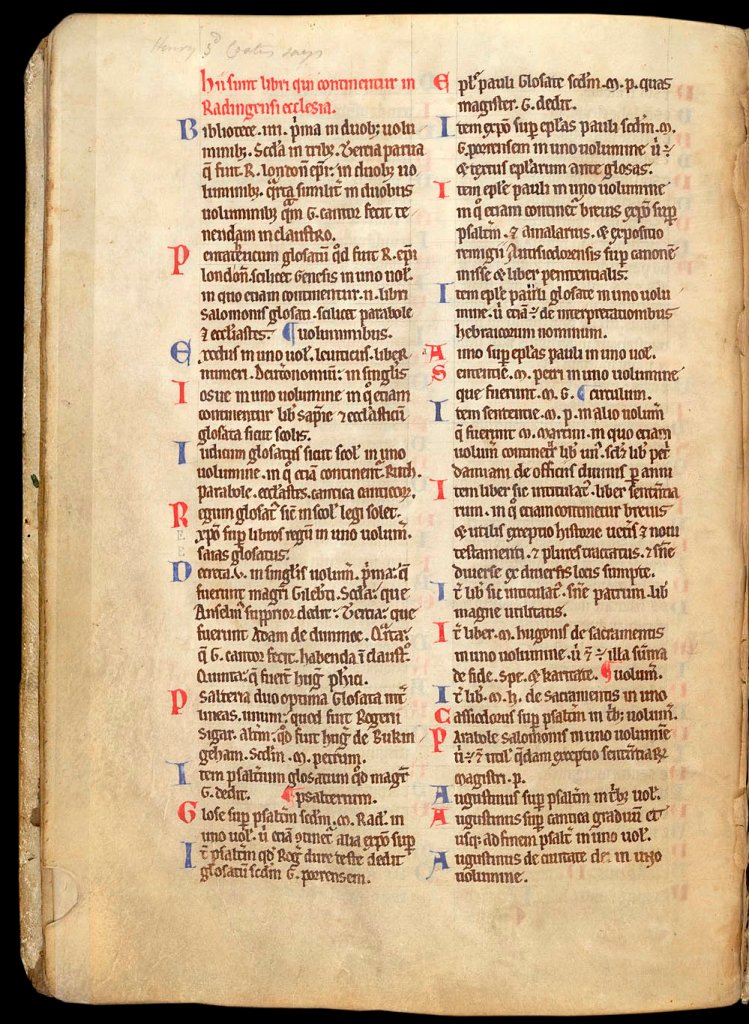 Henry 3d Coates says
hii sunt libri qui continentur in
Radingensi ecclesia.
Bibliotece .iiii. p̃ma in duobꝫ uolu
minibꝫ. Scđa in tribꝫ. Tercia parua
q̃ fuit .R. londoñ ep̃i: in duobꝫ uo
luminibꝫ. q̃rta similit̃ in duobus
uoluminibꝫ q̃m .G. cantor fecit te
nendam in claustro.
Pentateucum glosatũ qđ fuit R. ep̃i
londoñ. scilicet Genesis in uno uol̃.
in quo etiam continentur .ii. libri
Salomonis glosati. scilicet parabole
⁊ eccl̃iastes. ¶ uoluminibus.
Exodus in uno uol̃. leuiticus. liber
numeri. Deut̃onomiũ: in singlis
Iosue in uno uolumine in q̊ etiam
continentur lib̃ sap̃ie ⁊ eccl̃asticũ
glosata sicut scolis.
Iudicum glosatus sicut scol̃ in uno
uolumine. in q̊ etiã continent̃ Ruth.
parabole. eccl̃astes. cantica canticoꝝ.
Regum glosat̃ sic̃ in scol̃ legi solet.
xp̃o sup̃ libros regũ in uno uolum̃.
saias glosatus:
Decreta .v. in singlis uolum̃. p̃ma: q̃
fuerunt magr̃i Gileb̃ti. Scđa: que
Anselm̃ supprior dedit: Tertia: que
fuerunt Adam de dunmoe. Q̃rta:
q̃ .G. cantor fecit. habenda ĩ claust̊.
Quinta: q̃ fuer̃t hug̃ phici.
Psalteria duo optima Glosata int̃
lineas. unum: quod fuit Rogeri
Sigar. altm̃: qđ fuit hug̃ de Bukin
geham. Scđm .M. petrum.
Item psaltium glosatum qđ magr̃
G. dedit. ¶ psalterium.
Glose sup̃ psaltm̃ scđm .M. Rad̃. in
uno uol̃. ũ etiã ꝯtinet̃ alia exp̃o sup̃
It̃ psaltm̃ qđ Rog̃ dure teste dedit
glosatũ scđm G. porrensem.
Epl̃e pauli glosate scđm .M. p. quas
magister .G. dedit.
Item exp̃o sup̃ epl̃as pauli scđm .M.
G. porrensem in uno uolumine ũ ÷
⁊ textus epl̃arum ante glosas.
Item epl̃e pauli in uno uolumine
in q̊ etiam continet̃ breuis exp̃o sup̃
psaltm̃. ⁊ amalarius. ⁊ expositio
remigii Autisiodorensis sup̃ canonẽ
misse ⁊ liber penitentialis:
Item epl̃e pauli glosate in uno uolu
mine. ũ etiã ÷ de interpretationibus
hebraicorum nominum.
Aimo sup̃ epl̃as pauli in uno uol̃.
Sententie .M. petri in uno uolumine
que fuerunt .M. G. ¶ circulum.
Item sententie .M. p. in alio uolum̃
q̃ fuerunt M. Martini. in quo etiam
uolum̃ continet̃ lib̃ un̊. scl̃ꝫ lib̃ pet̃
damiani de officiis diuinis p̃ anni
Item liber sic intitulat̃. liber sententia
rum. in q̊ etiam continetur breuis
⁊ utilis exceptio historie uet̃is ⁊ noui
testamenti. ⁊ plures tractatus. ⁊ sñie
diuerse ex diuersis locis sumpte.
It̃ lib̃ sic intitulat̃. sñie patrum. lib̃
magne utilitatis.
It̃ liber .M. hugonis de sacramentis
in uno uolumine. ũ ⁊ ÷ illa sũma
de fide. Spe. ⁊ karitate. ¶ uolum̃.
It̃ lib̃. M. h. de sacramentis in uno
Cassiodorus sup̃ psaltm̃ in t̃bꝫ uolum̃.
Parabole salomonis in uno uolumiẽ
ũ ÷ ⁊ util̃ q̃dam exceptio sentẽtiaꝝ
magistri .p.
Augustinus sup̃ psaltm̃ in t̃bꝫ uol̃.
Augustinus sup̃ cantica graduũ et
usqꝫ ad finem psalt̃ in uno uol̃.
Augustinus de ciuitate dei in uno
uolumine.